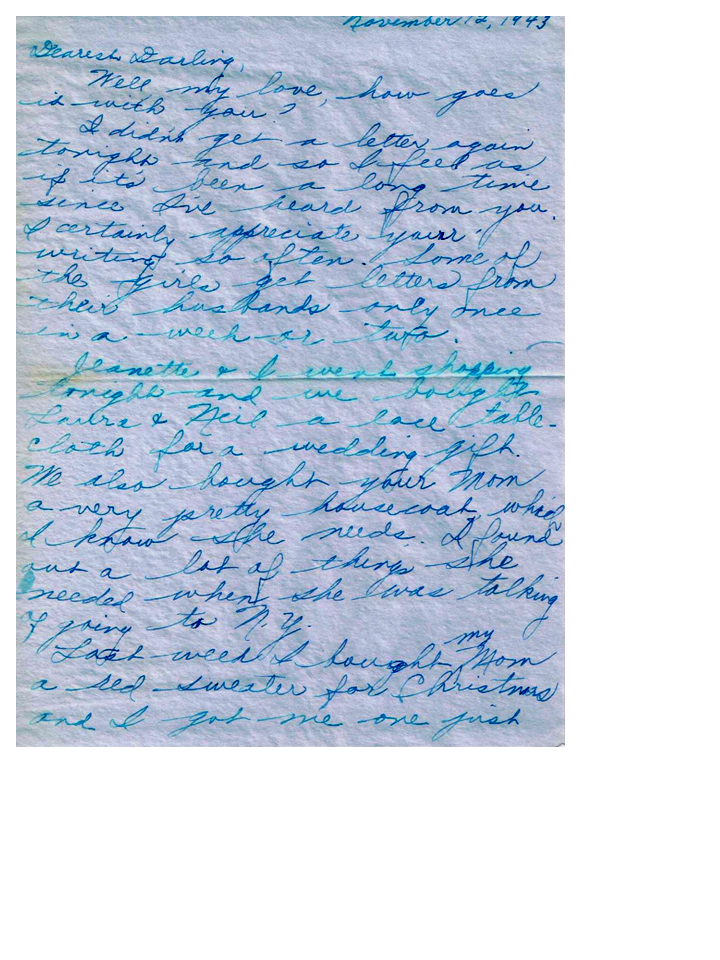 November 12, 1943
Dearest Darling,
Well my love, how goes
it with you?
I didn't get a letter again
tonight and so I feel as
if it's been a long time
since I've heard from you.
I certainly appreciate your
writing so often. Some of
the girls get letters from
their husbands only once
in a week or two.
Jeanette & I went shopping
tonight and we bought
Laura & Neil a lace table-
cloth for a wedding gift.
We also bought your Mom
a very pretty housecoat which
I know she needs. I found
out a lot of things she
needed when she was talking
of going to N.Y.
Last week I bought my Mom
a red sweater for Christmas
and I got me one just